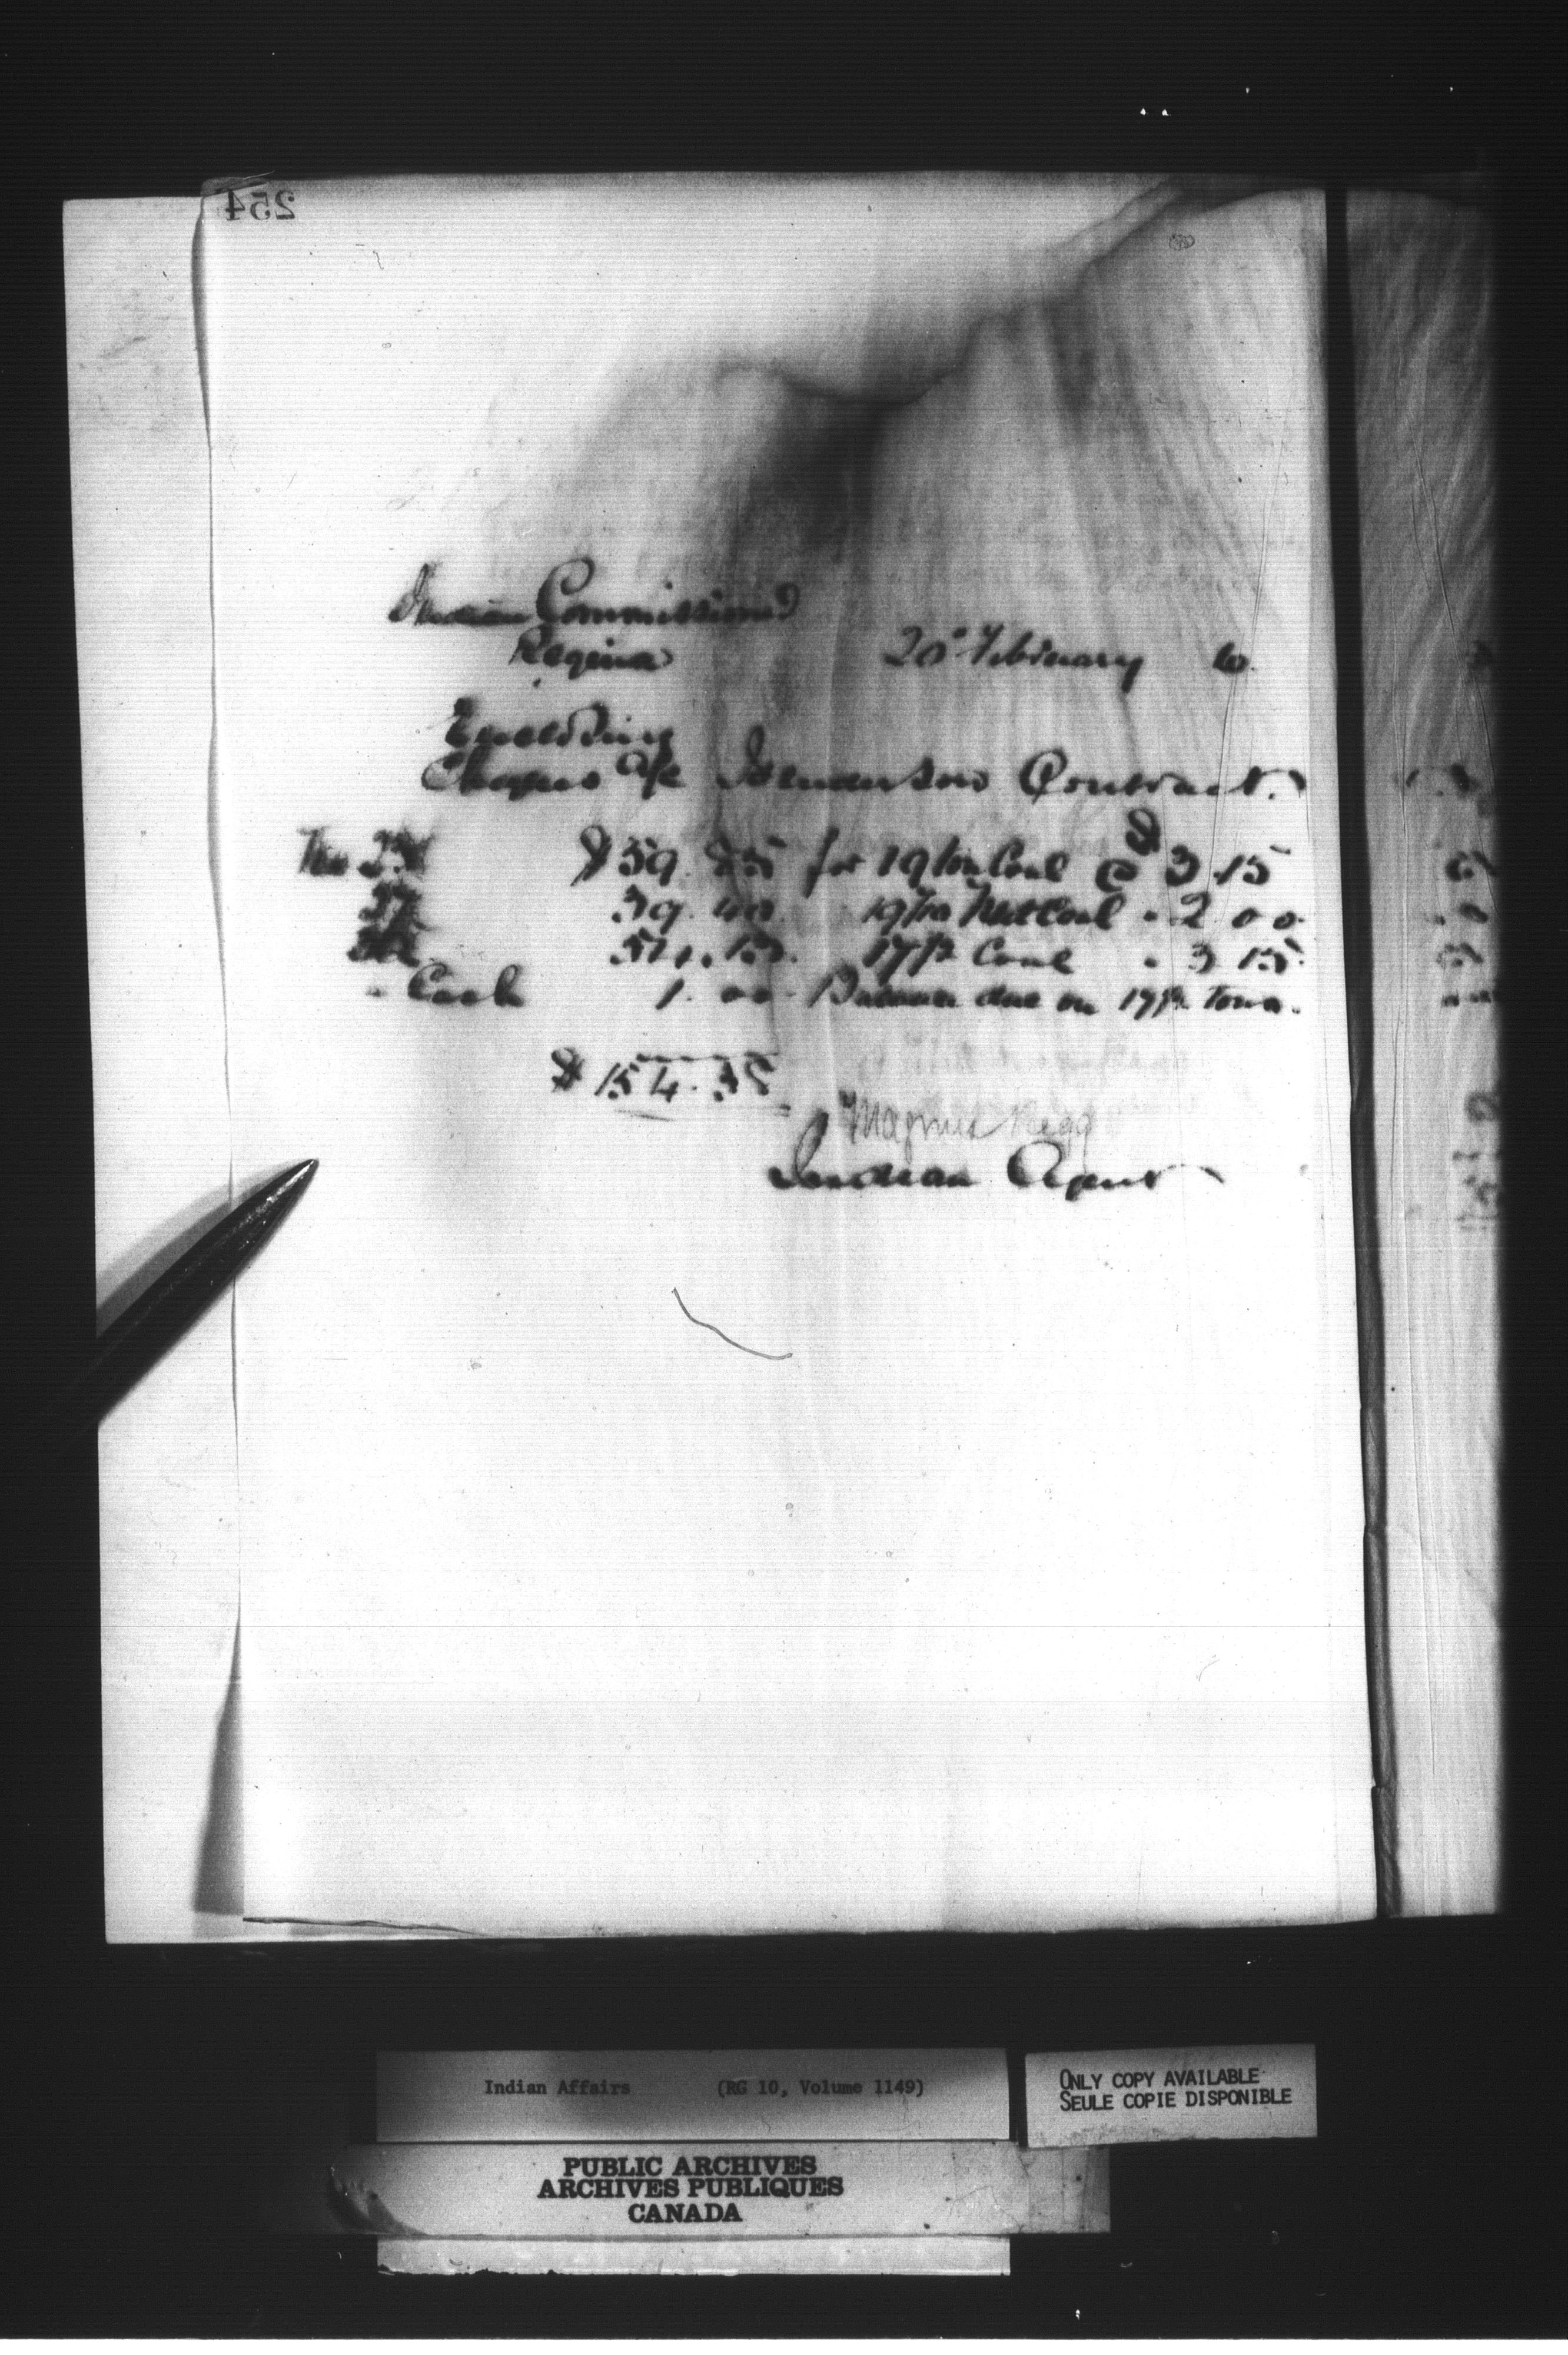 254
Indian Commissioner
Regina 20° February
Enclosing
Cheques a/c Henderson Contract.
No $59.85 for 19 ton Coal @ $3.15
27 39.40 19 7/10 Nut Coal " 2 00
17 1/2 Coal " 3 15
" Cash 1.00 Balance due on 17 1/2 tons.
$154.38
Magnus Begg
Indian Agent
Indian Affairs (RG 10, Volume 1149)
ONLY COPY AVAILABLE
SEULE COPIE DISPONIBLE
PUBLIC ARCHIVES
ARCHIVES PUBLIQUES
CANADA